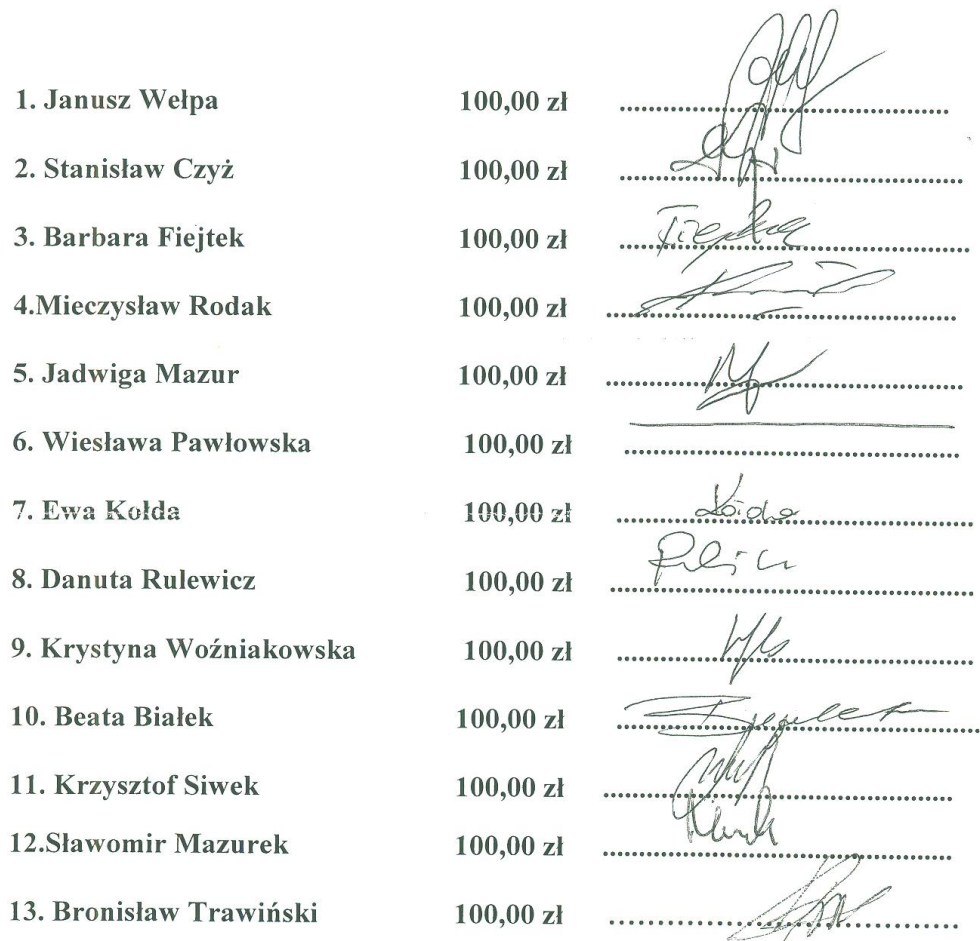 1. Janusz Wełpa 100,00 zł ....................................................
2. Stanisław Czyż 100,00 zł ....................................................
3. Barbara Fiejtek 100,00 zł ....................................................
4.Mieczysław Rodak 100,00 zł ....................................................
5. Jadwiga Mazur 100,00 zł ....................................................
6. Wiesława Pawłowska 100,00 zł ....................................................
7. Ewa Kołda 100,00 zł ....................................................
8. Danuta Rulewicz 100,00 zł ....................................................
9. Krystyna Woźniakowska 100,00 zł ....................................................
10. Beata Białek 100,00 zł ....................................................
11. Krzysztof Siwek 100,00 zł ....................................................
12.Sławomir Mazurek 100,00 zł ....................................................
13. Bronisław Trawiński 100,00 zł ....................................................